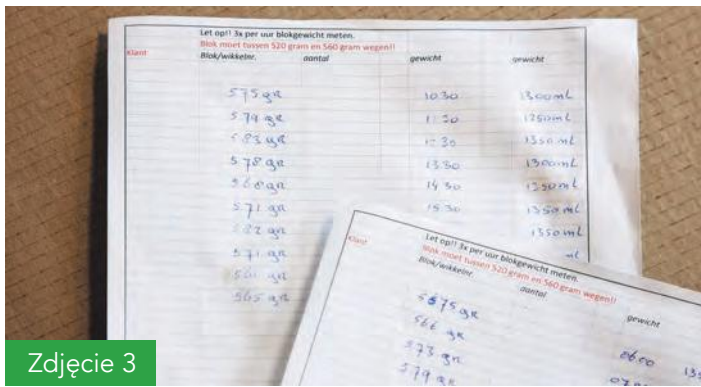 Let op!! 3x per uur blokgewicht meten.
Blok moet tussen 520 gram en 560 gram wegen!!
Klant Blok/wikkelnr. aantal gewicht gewicht
575 gr 10:30 1300 mL
579 gr 11:30 1250 mL
583 gr 12:30 1350 mL
578 gr 13:30 1300 mL
568 gr 14:30 1250 mL
571 gr 15:30 1350 mL
582 gr 1350 mL
571 gr mL
561 gr
565 gr
Let op!! 3x per uur blokgewicht meten.
Blok moet tussen 520 gram en 560 gram wegen!!
Klant Blok/wikkelnr. aantal gewicht
575 gr
566 gr 06:00
573 gr
579 gr
Zdjęcie 3